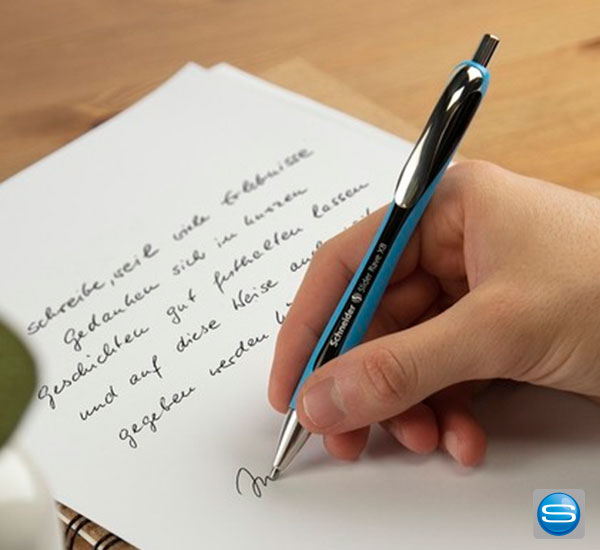 schreibe, weil viele Erlebnisse
Gedanken sich in kurzen
Geschichten gut festhalten lassen
und auf diese Weise auch
gegeben werden
Schneider Slider Rave XB
S